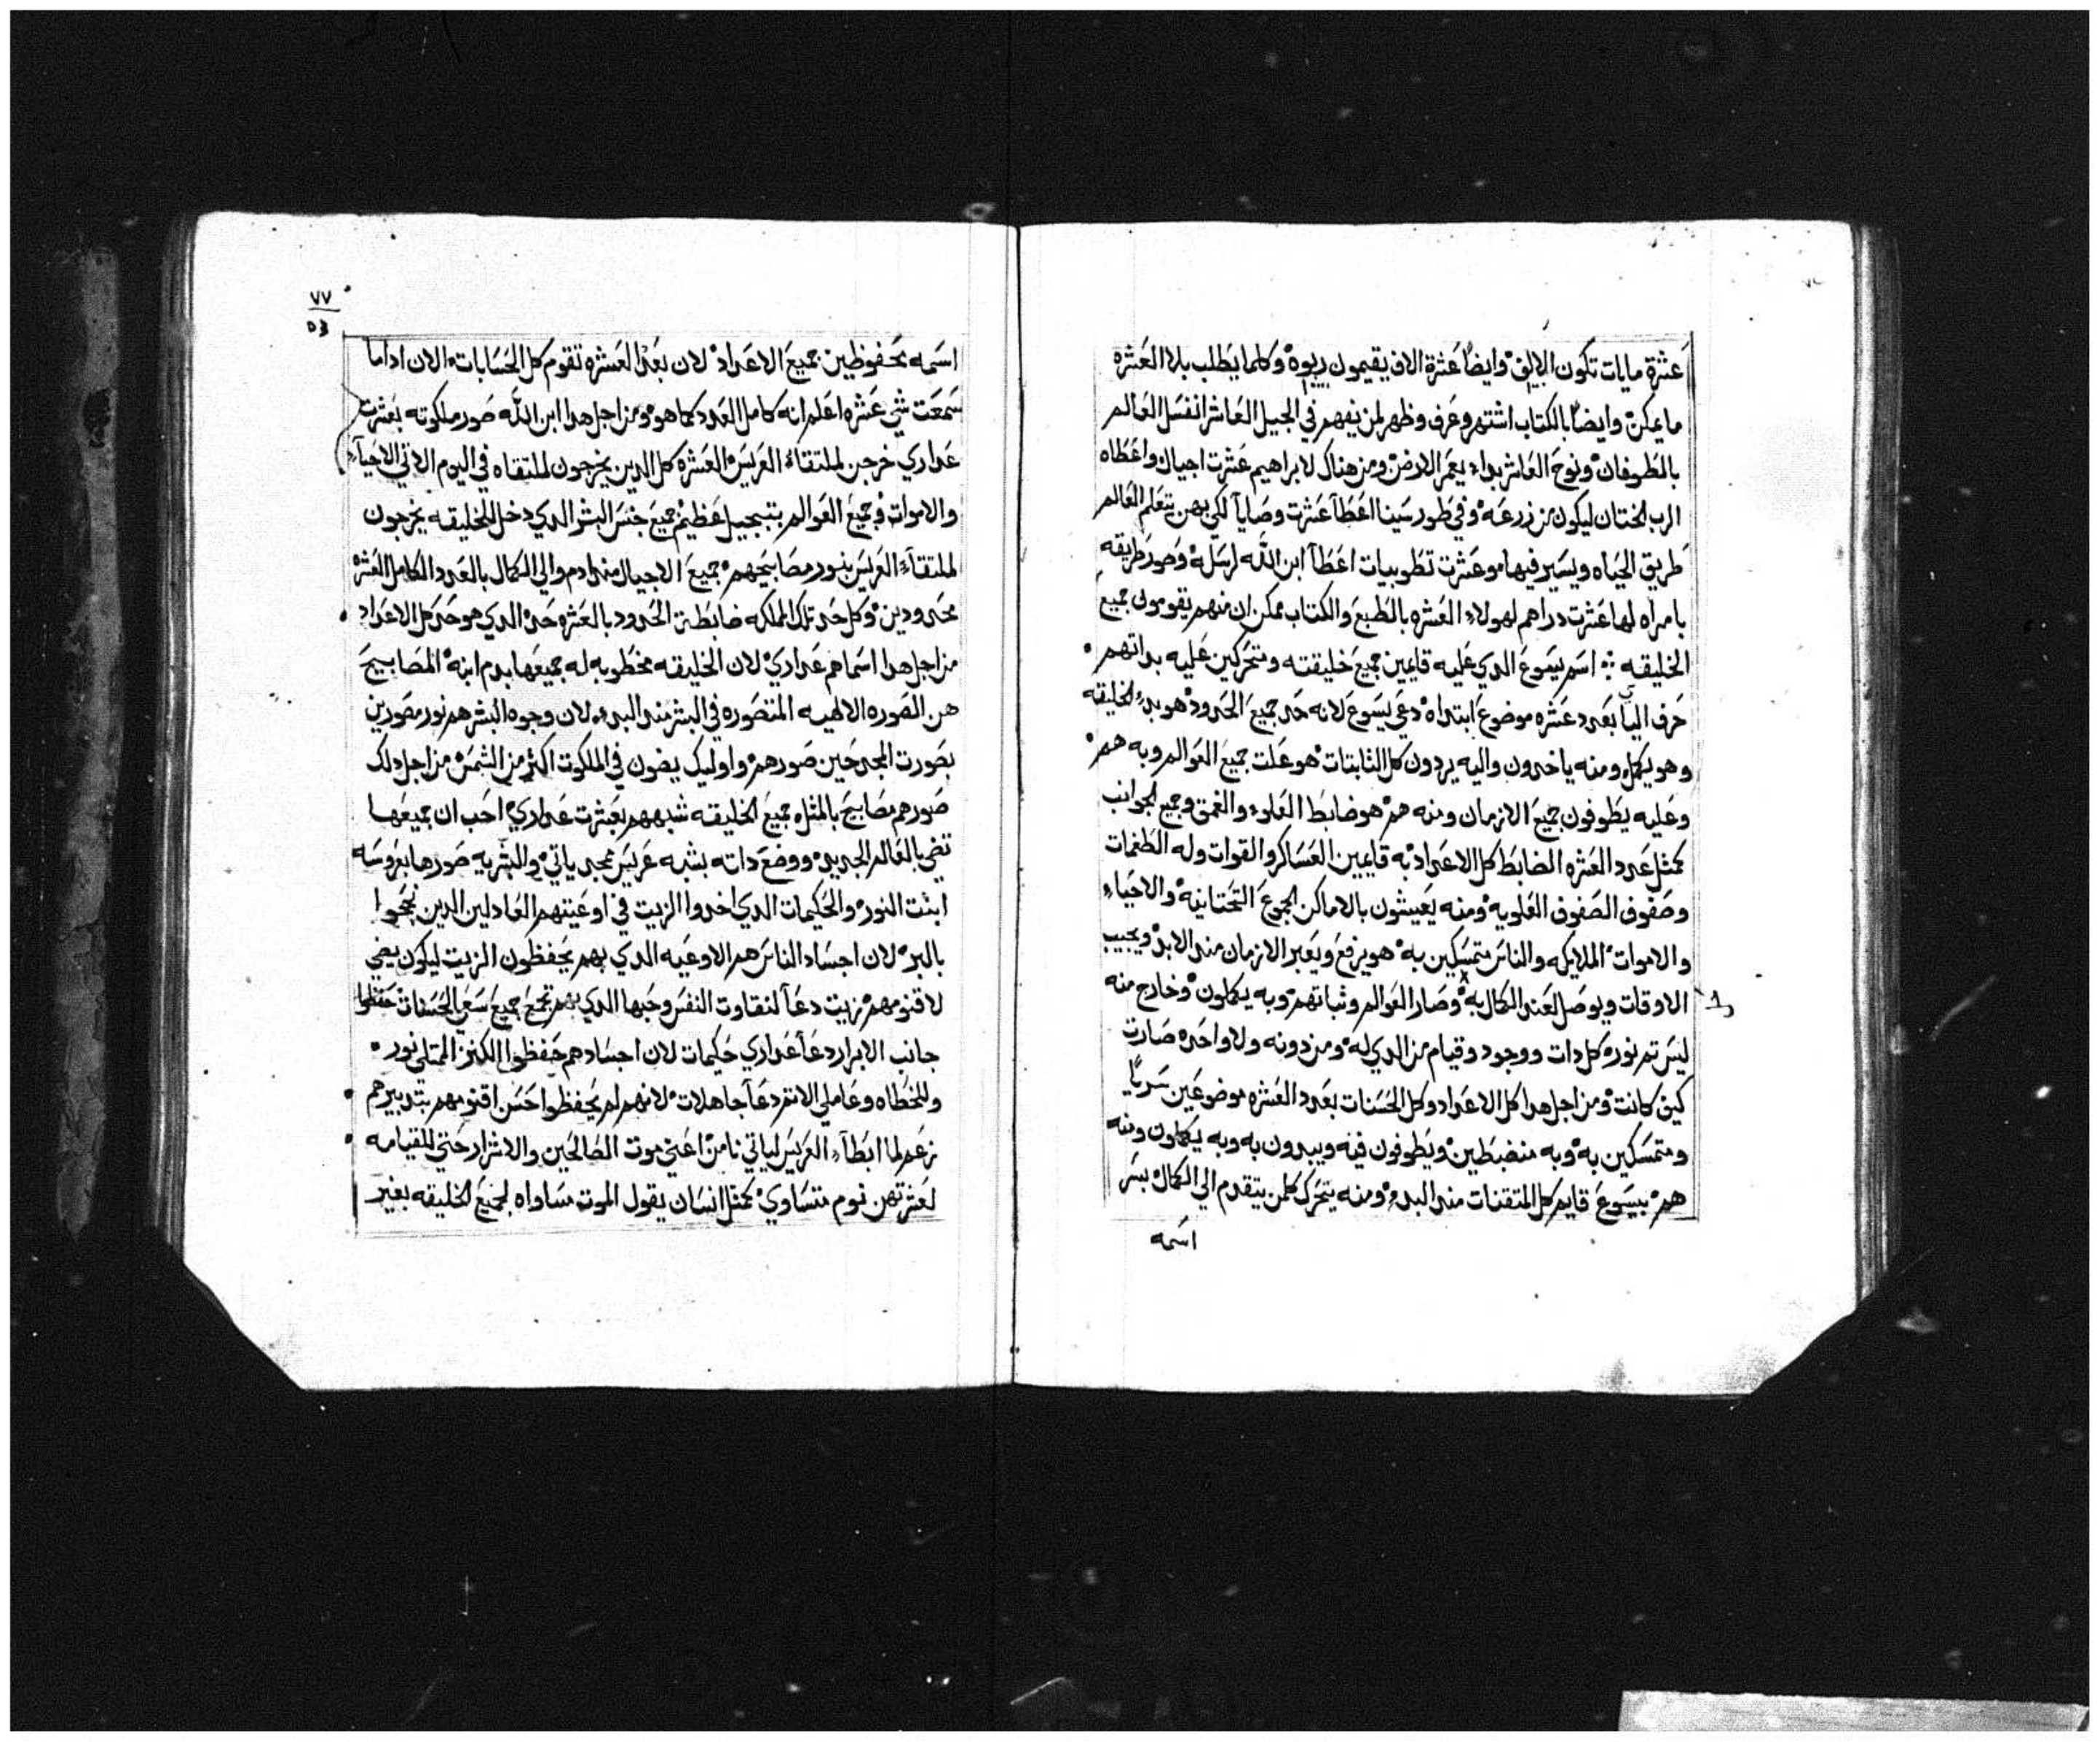 عشرة مايات تكون الالف وايضًا عشرة الاف يقيمون ربوه وكلما يطلب بلا العشره
ما يمكن وايضًا بالكتاب اشتهر وعرف وظهر لمن يفهم في الجيل العاشر انغسل العالم
بالطوفان ونوح العاشر بداء يعمر الارض ومن هناك لابراهيم عشرت اجيال واعطاه
الرب الختان ليكون من زرعه وفي طور سينا اعطآ عشرت وصايا لكي بهن يتعلم العالم
طريق الحياه ويسير فيها وعشرت تطوبيات اعطآ ابن الله لرسله وصور طريقه
بامراه لها عشرت دراهم لهولاء العشره بالطبع والكتاب ممكن ان منهم يقومون جميع
الخليقه اسم يسوع الدي عليه قايمين جميع خليقته ومتحركين عليه بداتهم
حرف اليا بعدد عشره موضوع ابتداه دعي يسوع لانه حد جميع الحدود هو بدء الخليقه
وهو يكمل ومنه ياخدون واليه يردون كل الثابتات هو علت جميع العوالم وبه هم
وعليه يطوفون جميع الازمان ومنه هم هو ضابط العلوء والغمق وجميع الجوانب
كمثل عدد العشره الضابط كل الاعداد به قايمين العساكر والقوات وله الطغمات
وصفوف الصفوف العلويه ومنه يعيشون بالاماكن الجموع التحتانيه والاحياء
والاموات الملايكه والناس متمسكين به هو يرفع ويعبر الازمان مند الابد ويجيب
الاوقات ويوصل لعند الكمال به وصار العوالم وثباتهم وبه يكملون وخارج منه
ليس تم نوره كل دات ووجود وقيام من الدي له ومن دونه ولا واحده صارت
كيف كانت ومن اجل هدا كل الاعداد وكل الحسنات بعدد العشره موضوعين سريًا
ومتمسكين به وبه منضبطين ويطوفون فيه ويبدون به وبه يكملون ومنه
هم بيسوع قايم كل المتقنات مند البدء ومنه يتحرك كلمن يتقدم الي الكمال بسر
اسمه
٧٧
اسمه محفوظين جميع الاعداد لان بعدد العشره تقوم كل الحسابات الان اداما
سمعت شي عشره اعلم انه كامل العدد كما هو ومن اجل هدا ابن الله صور ملكوته بعشرت
عداري خرجن لملتقاء العريس العشره كل الدين يخرجون لملتقاه في اليوم الاتي الاحيآء
والاموات وجميع العوالم بتبجيل عظيم جميع جنس البشر الدي دخل للخليقه يخرجون
لملتقآء العريس بنور مصابيحهم جميع الاجيال مند ادم والي الكمال بالعدد الكامل العشره
محدودين وكل حد تلك المملكه ضابطة الحدود بالعشره حد الدي هو حد كل الاعداد
من اجل هدا اسماهم عداري لان الخليقه مخطوبه له جميعها بدم ابنه المصابيح
هن الصوره الالهيه المتصوره في البشر مند البدء لان وجوه البشر هم نور مصورين
بصورت المجد حين صورهم واوليك يضون في الملكوت اكثر من الشمس من اجل دلك
صورهم مصابيح بالمثل جميع الخليقه شبههم بعشرت عداري احب ان جميعها
تضي بالعالم الجديد ووضع داته بشبه عريس ممجد ياتي والبشريه صورها بعروسه
ابنت النور والحكيمات الدي اخدوا الزيت في اوعيتهم العادلين الدين نجحوا
بالبر لان اجساد الناس هم الاوعيه الدي بهم يحفظون الزيت ليكون يضي
لاقنومهم زيت دعآ لنقاوت النفس وحبها الدي بهم تجمع جميع سعي الحسنات حفظوا
جانب الابرار دعآ عداري حكيمات لان اجسادهم حفظوا الكنز الممتلي نور
وللخطاه وعاملي الاتم دعآ جاهلات لانهم لم يحفظوا حسن اقنومهم بتدبيرهم
زعم لما ابطآء العريس لياتي نامن اعني موت الصالحين والاشرار حتي للقيامه
لعشرتهن نوم متساوي كمثل انسان يقول الموت مساواه لجميع الخليقه بغير